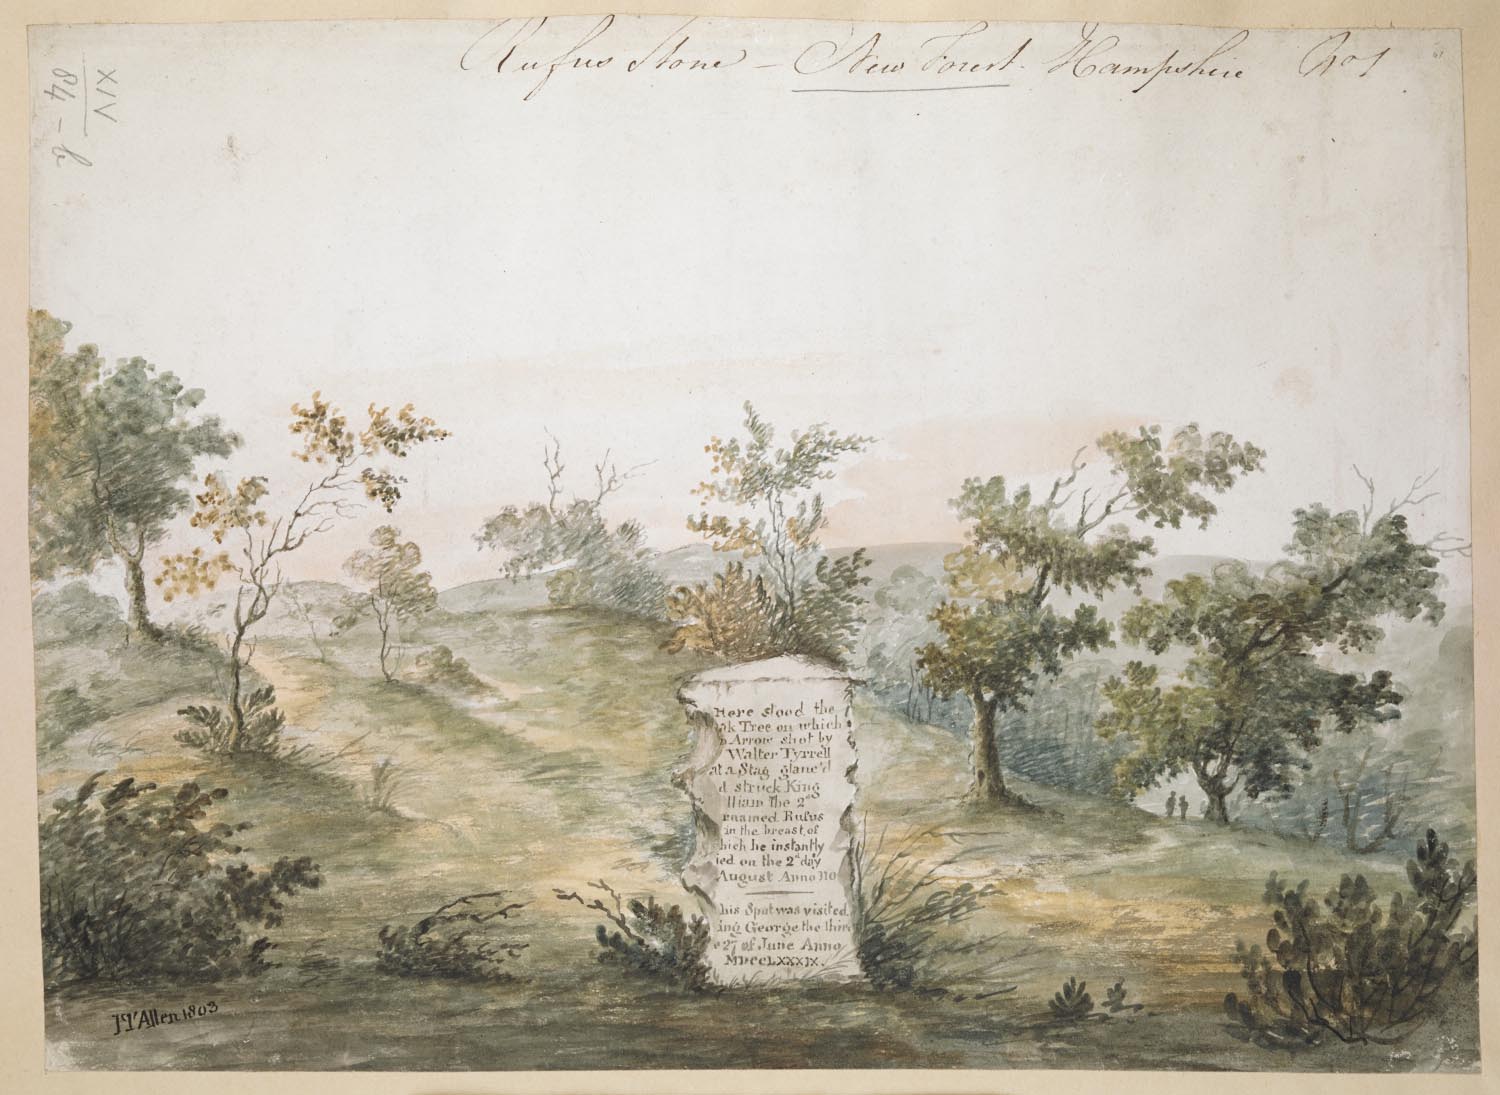 Rufus Stone - New Forest. Hampshire No 1
XIV
84-b
Here stood the
ak Tree on which
Arrow shot by
Walter Tyrrell
at a Stag glanc'd
d struck King
lliam the 2d
rnamed Rufus
in the breast, of
hich he instantly
ied on the 2d day
August Anno 110
his Spot was visited
ing George the third
e 27 of June Anno
MDCCLXXXIX.
Allen 1803